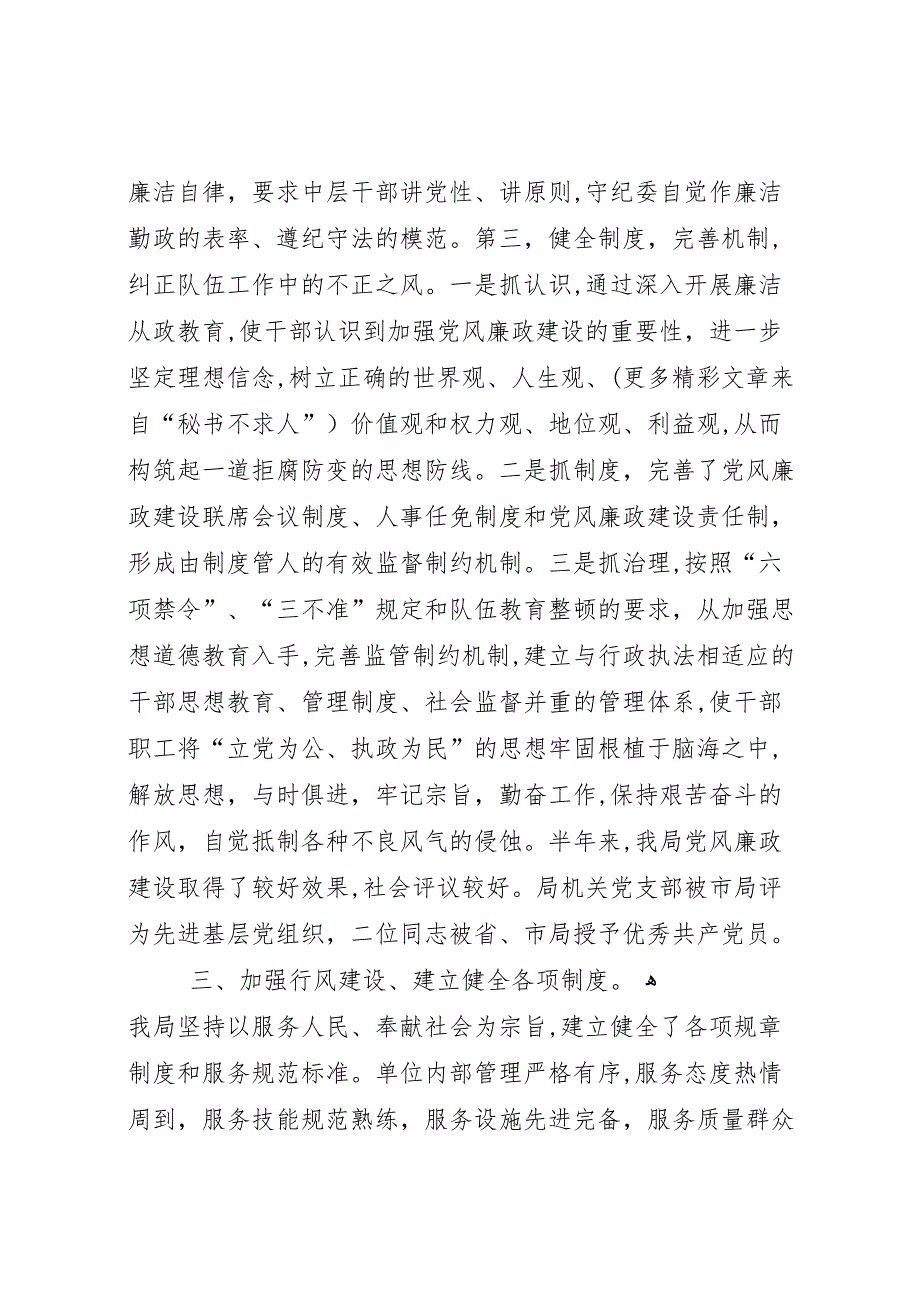 廉洁自律，要求中层干部讲党性、讲原则,守纪委自觉作廉洁
勤政的表率、遵纪守法的模范。第三，健全制度，完善机制,
纠正队伍工作中的不正之风。一是抓认识,通过深入开展廉洁
从政教育,使干部认识到加强党风廉政建设的重要性，进一步
坚定理想信念,树立正确的世界观、人生观、(更多精彩文章来
自“秘书不求人”）价值观和权力观、地位观、利益观,从而
构筑起一道拒腐防变的思想防线。二是抓制度，完善了党风廉
政建设联席会议制度、人事任免制度和党风廉政建设责任制，
形成由制度管人的有效监督制约机制。三是抓治理,按照“六
项禁令”、“三不准”规定和队伍教育整顿的要求，从加强思
想道德教育入手,完善监管制约机制,建立与行政执法相适应的
干部思想教育、管理制度、社会监督并重的管理体系,使干部
职工将“立党为公、执政为民”的思想牢固根植于脑海之中,
解放思想，与时俱进，牢记宗旨，勤奋工作,保持艰苦奋斗的
作风，自觉抵制各种不良风气的侵蚀。半年来,我局党风廉政
建设取得了较好效果,社会评议较好。局机关党支部被市局评
为先进基层党组织，二位同志被省、市局授予优秀共产党员。
三、加强行风建设、建立健全各项制度。 ﻫ
我局坚持以服务人民、奉献社会为宗旨,建立健全了各项规章
制度和服务规范标准。单位内部管理严格有序,服务态度热情
周到，服务技能规范熟练，服务设施先进完备，服务质量群众